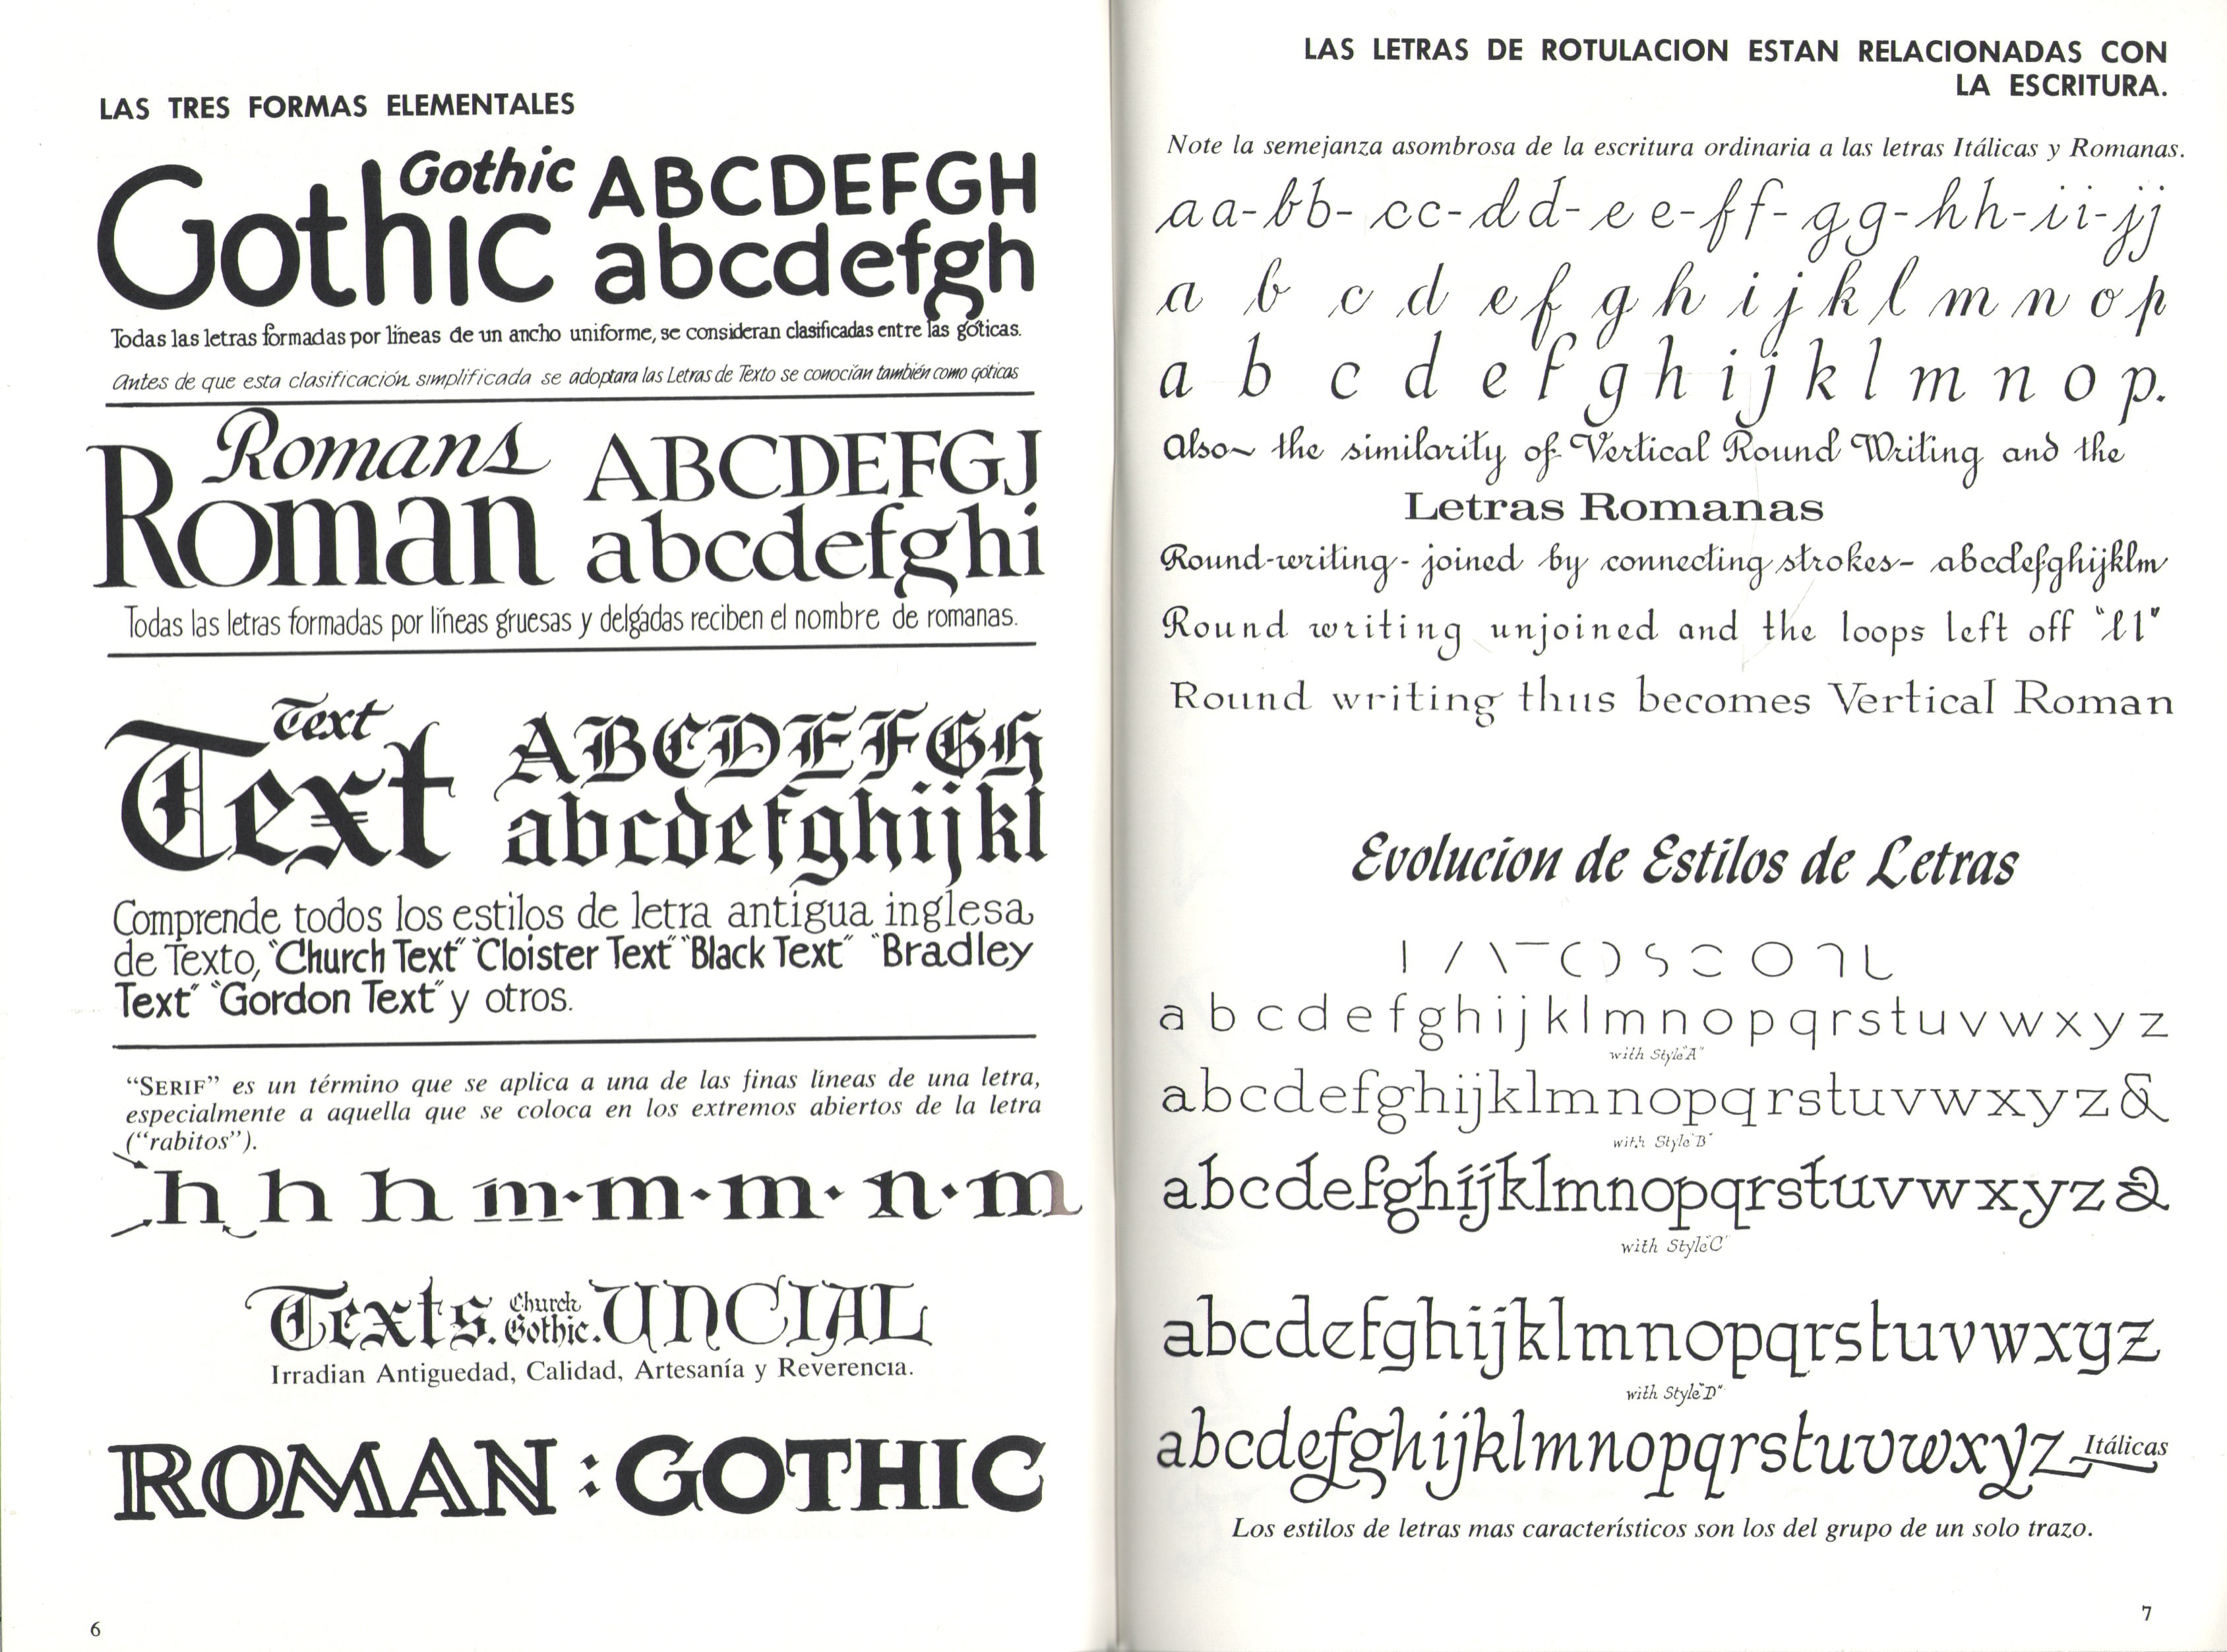 LAS TRES FORMAS ELEMENTALES
Gothic Gothic ABCDEFGH
abcdefgh
Todas las letras formadas por líneas de un ancho uniforme, se consideran clasificadas entre las góticas.
Antes de que esta clasificación simplificada se adoptara las Letras de Texto se conocían también como góticas
Romans
Roman ABCDEFGJ
abcdefghi
Todas las letras formadas por líneas gruesas y delgadas reciben el nombre de romanas.
Text
Text ABCDEFGH
abcdefghijkl
Comprende todos los estilos de letra antigua inglesa
de Texto, "Church Text" "Cloister Text" "Black Text" "Bradley
Text" "Gordon Text" y otros.
“SERIF” es un término que se aplica a una de las finas líneas de una letra,
especialmente a aquella que se coloca en los extremos abiertos de la letra
(“rabitos”).
h h h m·m·m·n·m
Texts. Church Gothic. UNCIAL
Irradian Antiguedad, Calidad, Artesanía y Reverencia.
ROMAN : GOTHIC
6
LAS LETRAS DE ROTULACION ESTAN RELACIONADAS CON
LA ESCRITURA.
Note la semejanza asombrosa de la escritura ordinaria a las letras Itálicas y Romanas.
aa-bb-cc-dd-ee-ff-gg-hh-ii-jj
a b c d e f g h i j k l m n o p
a b c d e f g h i j k l m n o p.
Also~ the similarity of Vertical Round Writing and the
Letras Romanas
Round-writing- joined by connecting strokes- abcdefghijklm
Round writing unjoined and the loops left off "ll"
Round writing thus becomes Vertical Roman
Evolucion de Estilos de Letras
a b c d e f g h i j k l m n o p q r s t u v w x y z
with Style "A"
abcdefghijklmnopqrstuvwxyz&
with Style "B"
abcdefghijklmnopqrstuvwxyz&
with Style "C"
abcdefghijklmnopqrstuvwxyz
with Style "D"
abcdefghijklmnopqrstuvwxyz Itálicas
Los estilos de letras mas característicos son los del grupo de un solo trazo.
7